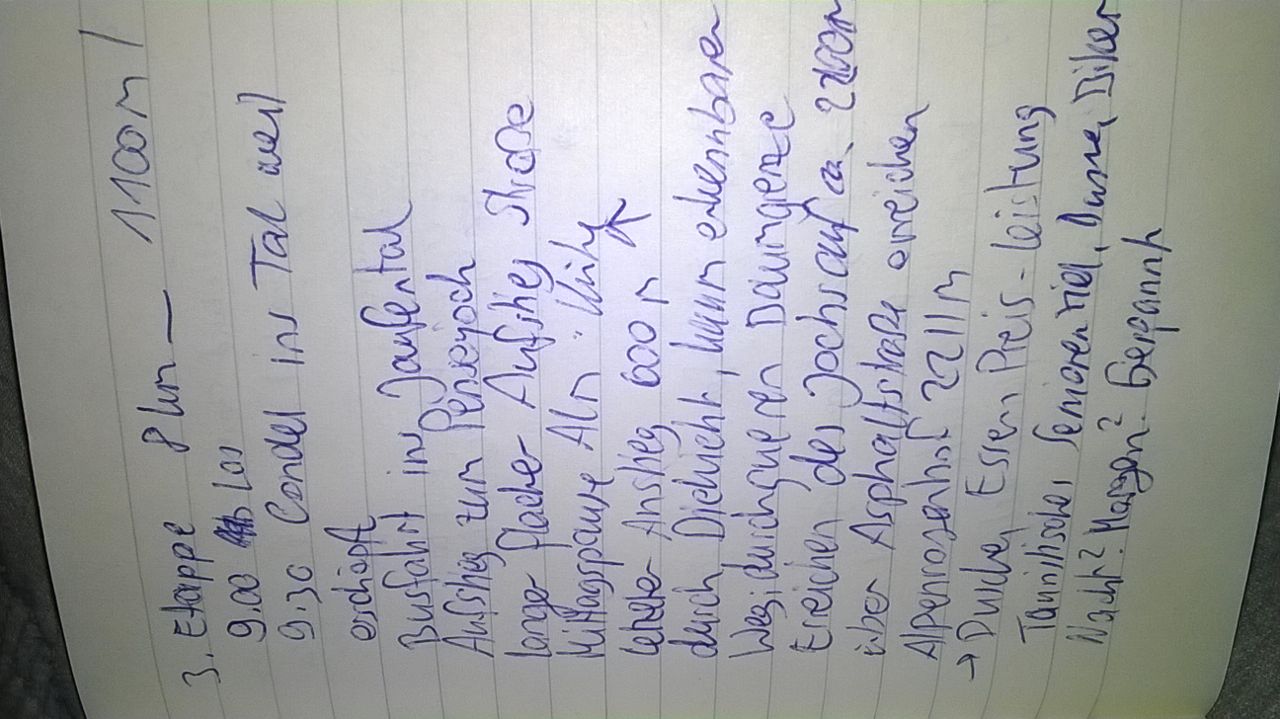 3. Etappe 8 km — 1100 m /
9.00 Los
9.30 Gondel ins Tal weil
erschöpft
Busfahrt ins Jaufental
Aufstieg zum Penserjoch
langer flacher Aufstieg Straße
Mittagspause Alm
letzter Anstieg 600 m ↑
durch Dickicht, kaum erkennbaren
Weg; durchqueren Baumgrenze
Erreichen des Jochs auf ca. 2200m
über Asphaltstraße erreichen
Alpenrosenhof 2211 m
→ Dusche, Essen, Preis-Leistung
Touristisches Seniorenziel, Busse, Biker
Nacht? Morgen? Gespannt